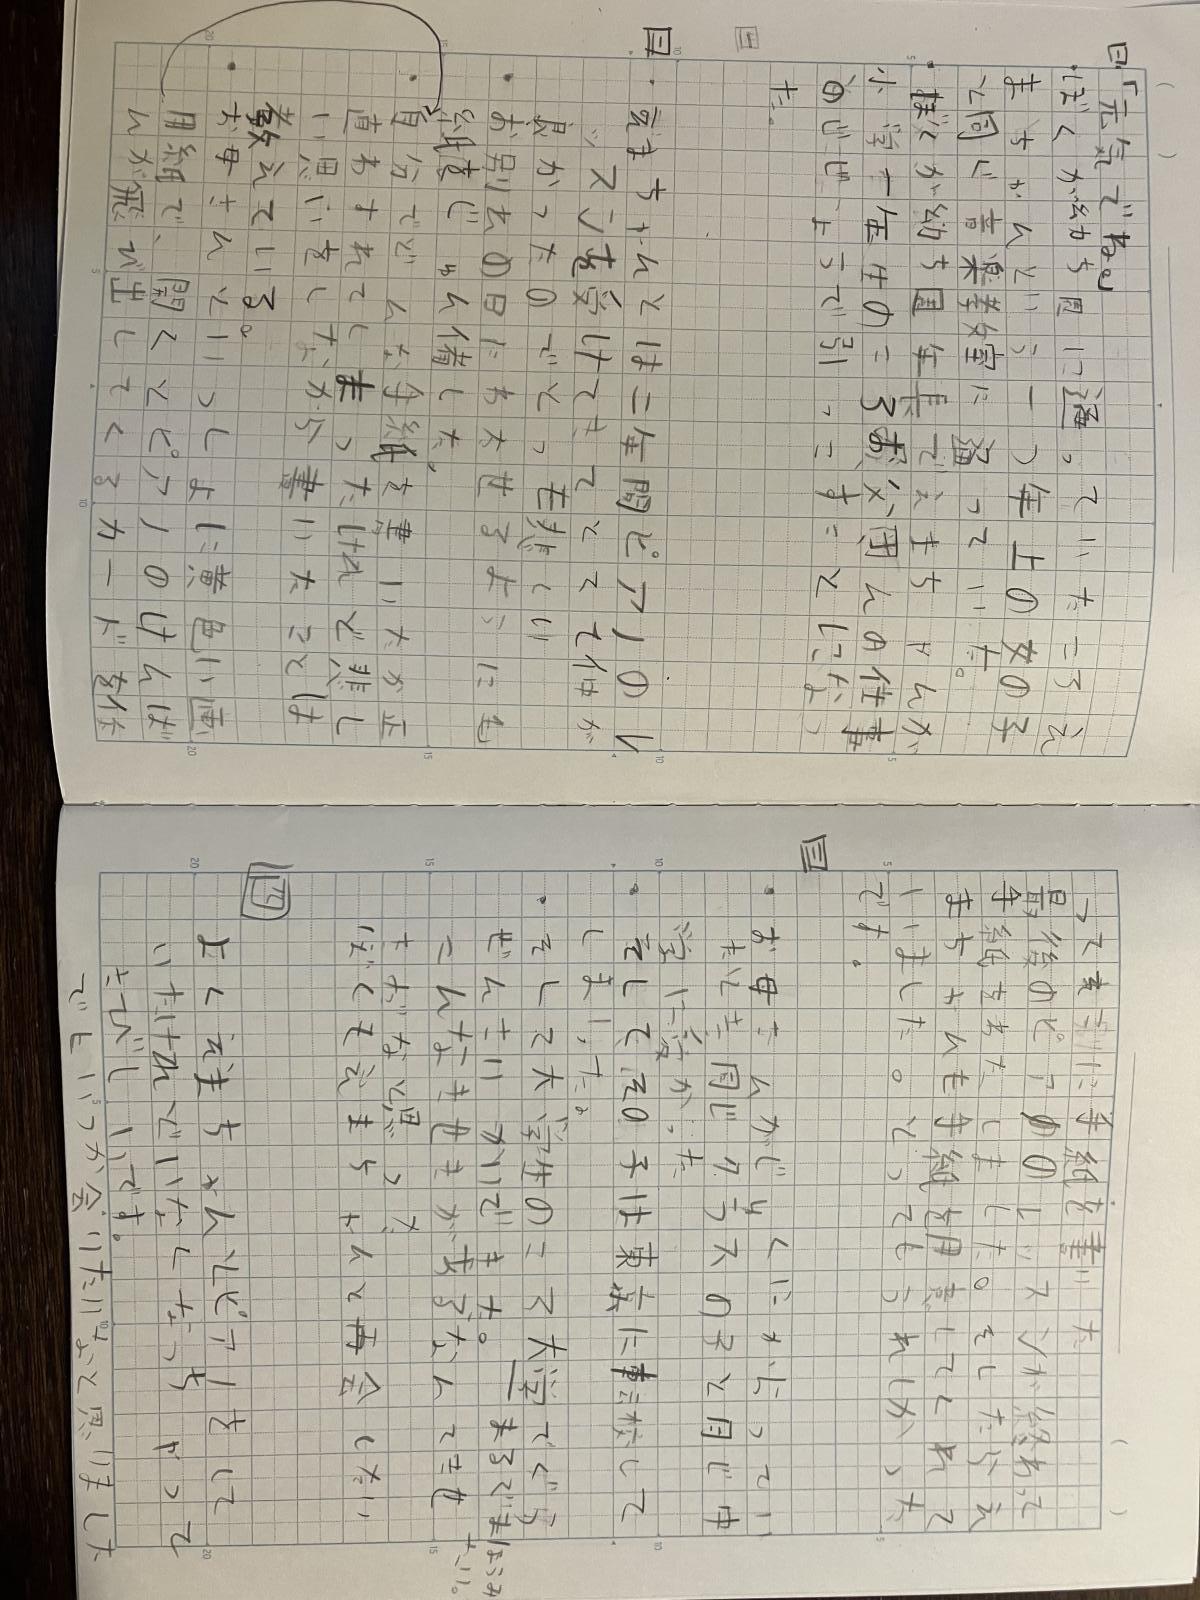 一「元気でね」
・ぼくが幼ち園に通っていたころえ
まちゃんという一つ年上の女の子
と同じ音楽教室に通っていた。
・ぼくが幼ち園年長でえまちゃんが
小学一年生のころお父さんの仕事
のじじょうで引っこすことになっ
た。
二
・えまちゃんとは二年間ピアノのレ
ッスンを受けてきてとても仲が
良かったのでとっても悲しい
・お別れの日にわたせるように色
紙をじゅん備した。
・自分でどんな手紙を書いたか正
直わすれてしまったけれど悲し
い思いをしながら書いたことは
教えている。
・お母さんといっしょに黄色い画
用紙で、開くとピアノのけんば
んが飛び出してくるカードを作
って裏に手紙を書いた
最後のピアノのレッスンが終わって
手紙をわたしました。そしたらえ
まちゃんも手紙を用意してくれて
いました。とってもうれしかった
です。
三
・お母さんがじゅくにかよってい
たときに同じクラスの子と同じ中
学に受かった
・そしてその子は東京に転校して
しまった。
・そして大学生のころ大学でぐう
ぜんさいかいできた。
こんなきせきがあるなんてきせ
きだなと思った
まるでまほうみたい。
ぼくもえまちゃんと再会したい
四
よくえまちゃんとピアノをして
いたけれどいなくなっちゃって
さびしいです。
でもいつか会いたいなと思いました